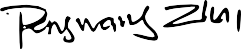 Pengwang Zhai